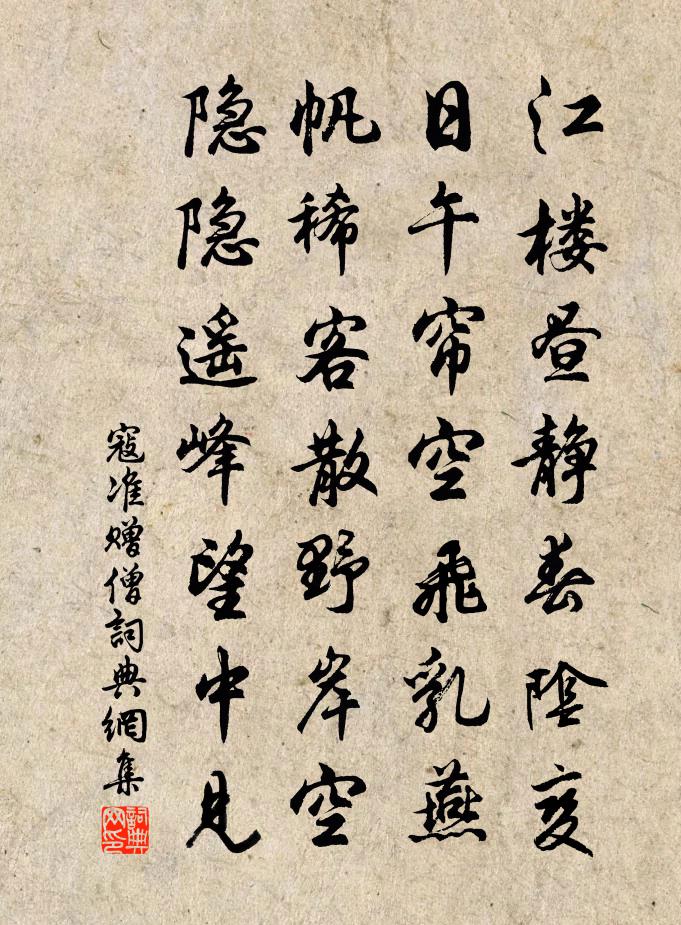 江楼昼静春陰变
日午帘空飛乳燕
帆稀客散野岸空
隐隐遥峰望中见
寇准赠僧詞典網集
詞典網印